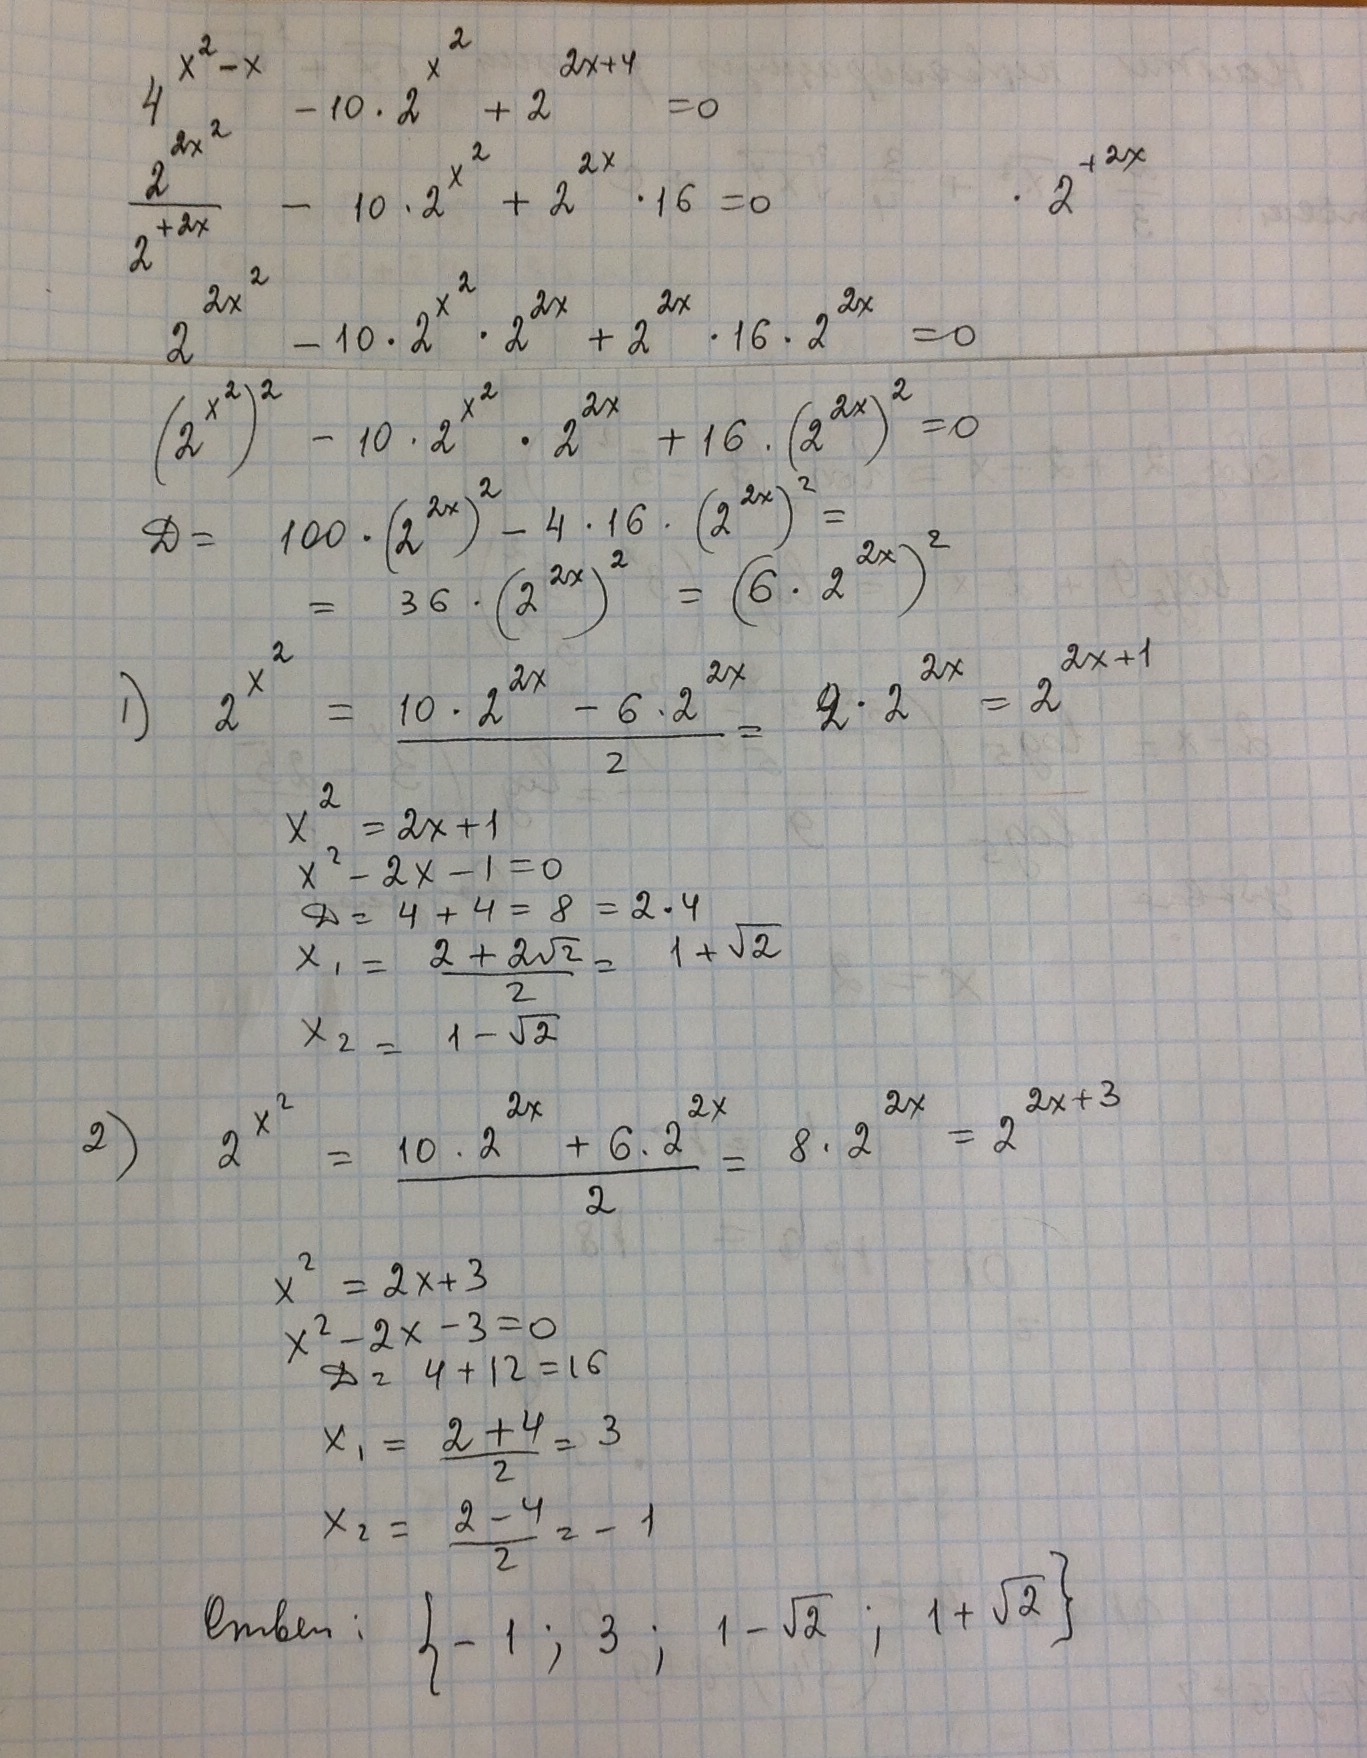 4^{x^2-x} - 10 · 2^{x^2} + 2^{2x+4} = 0
\frac{2^{2x^2}}{2^{+2x}} - 10 · 2^{x^2} + 2^{2x} · 16 = 0 · 2^{+2x}
2^{2x^2} - 10 · 2^{x^2} · 2^{2x} + 2^{2x} · 16 · 2^{2x} = 0
(2^{x^2})^2 - 10 · 2^{x^2} · 2^{2x} + 16 · (2^{2x})^2 = 0
D = 100 · (2^{2x})^2 - 4 · 16 · (2^{2x})^2 =
= 36 · (2^{2x})^2 = (6 · 2^{2x})^2
1) 2^{x^2} = \frac{10 · 2^{2x} - 6 · 2^{2x}}{2} = 2 · 2^{2x} = 2^{2x+1}
x^2 = 2x + 1
x^2 - 2x - 1 = 0
D = 4 + 4 = 8 = 2 · 4
x_1 = \frac{2 + 2√2}{2} = 1 + √2
x_2 = 1 - √2
2) 2^{x^2} = \frac{10 · 2^{2x} + 6 · 2^{2x}}{2} = 8 · 2^{2x} = 2^{2x+3}
x^2 = 2x + 3
x^2 - 2x - 3 = 0
D = 4 + 12 = 16
x_1 = \frac{2 + 4}{2} = 3
x_2 = \frac{2 - 4}{2} = -1
Ответ: {-1 ; 3 ; 1 - √2 ; 1 + √2}